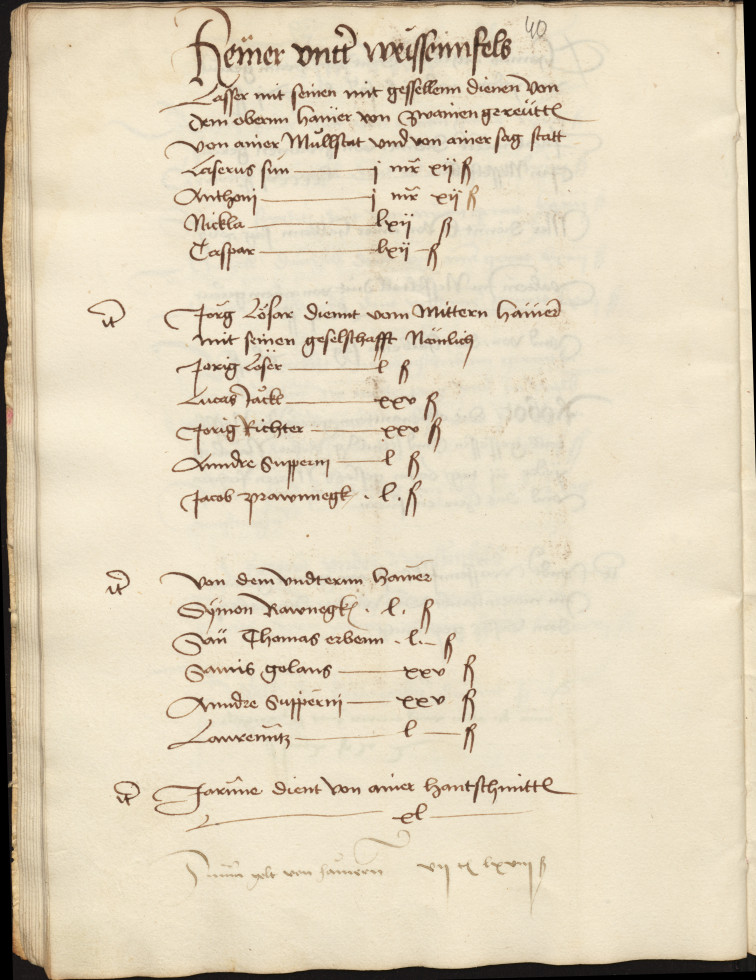 40
Hemer vntter weissennfels
Lasser mit seinen mit gesellenn dienen von
dem obernn hamer von Zwainengereuttl
von ainer Mullstat vnd von ainer sag statt
Laserus sun j mr xij ß
Anthonj j mr xij ß
Nickla lxij ß
Caspar lxij ß
it Jorg Löser diennt vom Mittern hamer
mit seinen geselschafft Nemlich
Jorig Löser l ß
Lucas Jäckl xxv ß
Jorig Richter xxv ß
Anndre Suppernj l ß
Jacob prawnnegk . l . ß
it von dem vndternn hamer
Symon Rawnegk . l . ß
San Thomas erbenn . l . ß
Samis golans xxv ß
Anndre Suppernj xxv ß
Lawrenntz l ß
it Jarnne dient von ainer hantschmittl
xl
Summ gelt von hamern vij lxviij ß